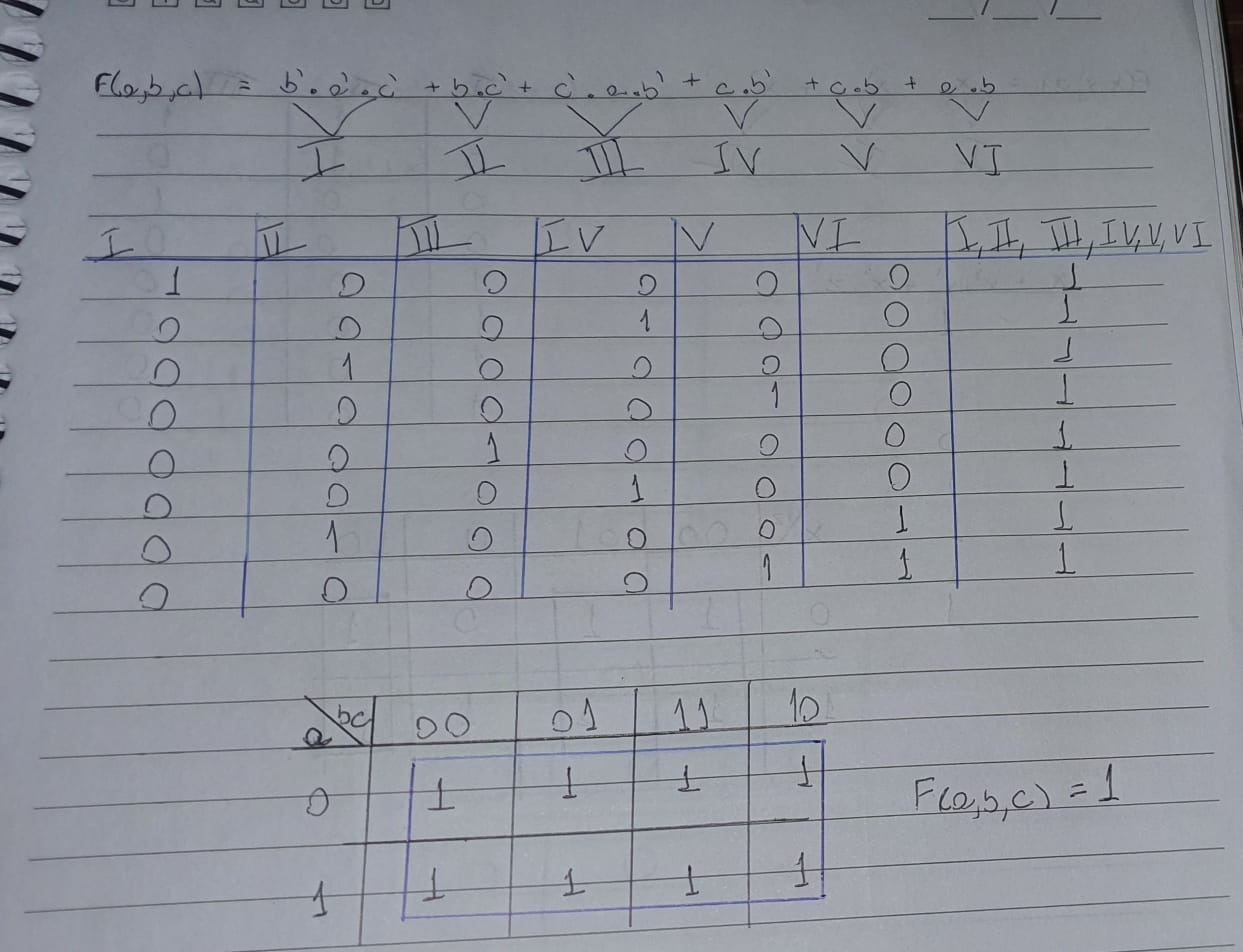 __/__/__
F(a,b,c) = b'.a'.c' + b.c' + c'.a.b' + c.b' + c.b + a.b
I II III IV V VI
I II III IV V VI I, II, III, IV, V, VI
1 0 0 0 0 0 1
0 0 0 1 0 0 1
0 1 0 0 0 0 1
0 0 0 0 1 0 1
0 0 1 0 0 0 1
0 0 0 1 0 0 1
0 1 0 0 0 1 1
0 0 0 0 1 1 1
a\bc 00 01 11 10
0 1 1 1 1
F(a,b,c) = 1
1 1 1 1 1